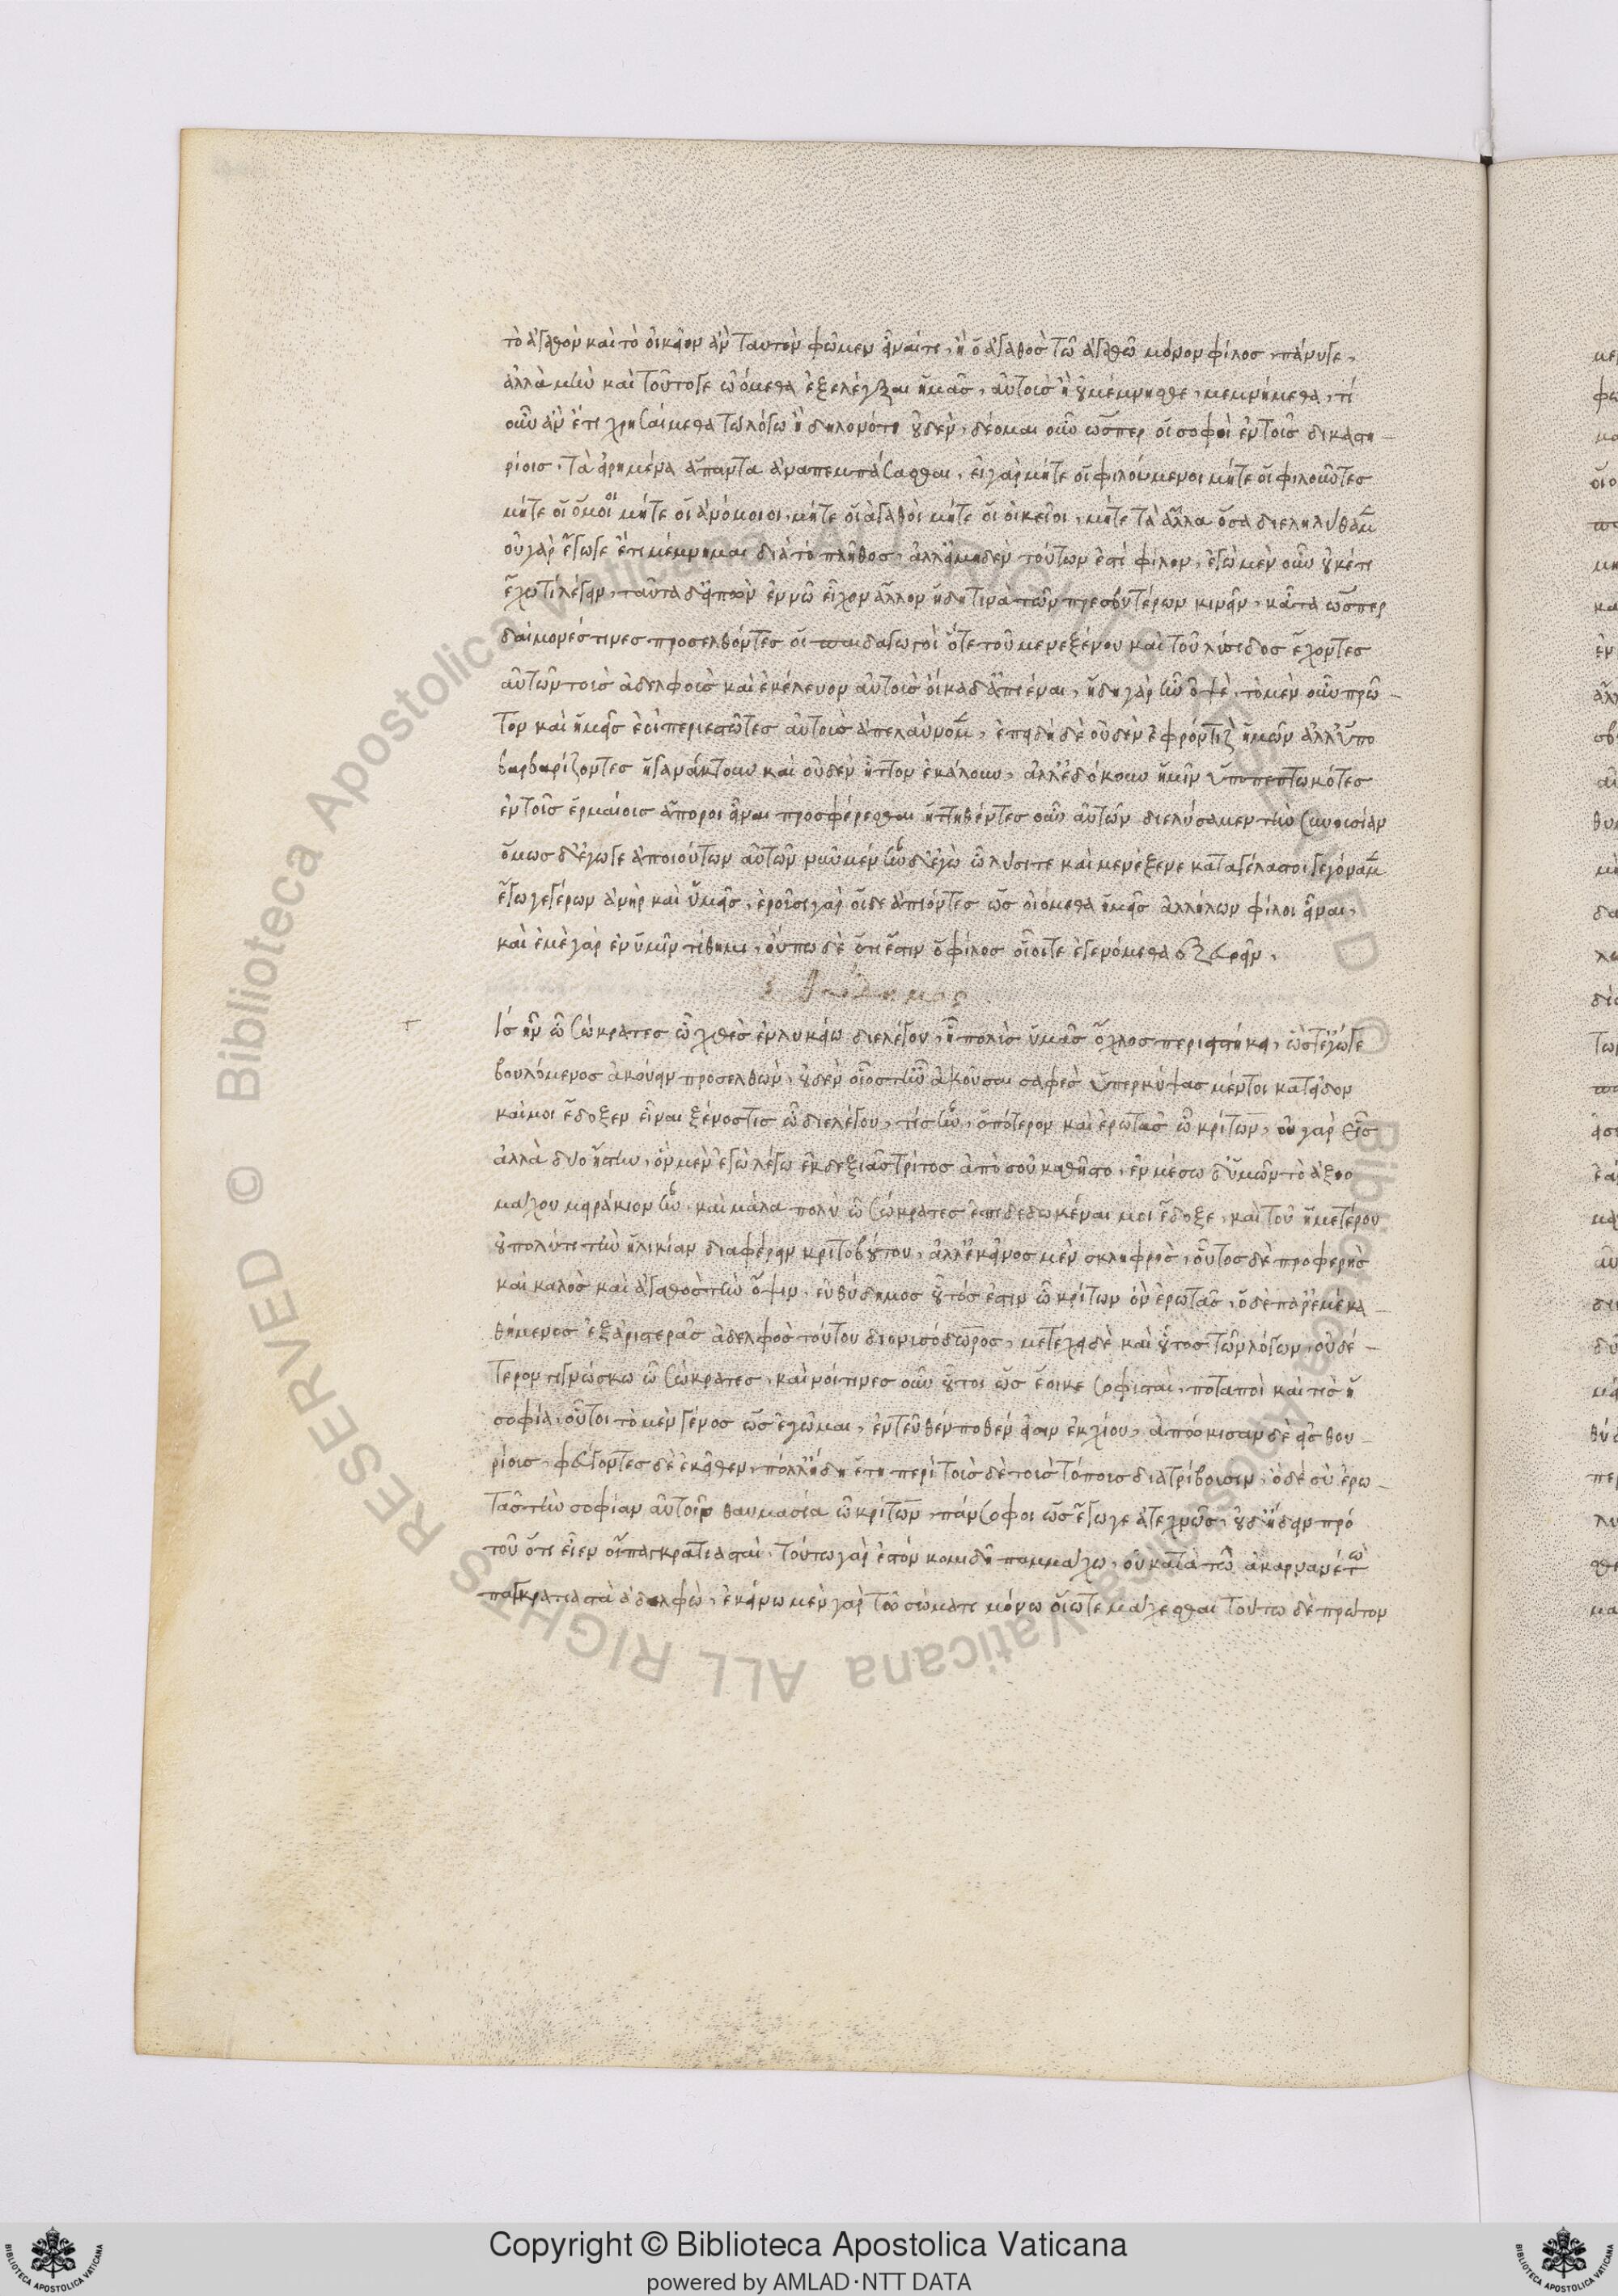 τὸ ἀγαθὸν καὶ τὸ οἰκεῖον ἂν ταυτὸν φῶμεν εἶναί τι, ἢ ὁ ἀγαθὸς τῶ ἀγαθῶ μόνον φίλος, πάνυ γε,
ἀλλὰ μὴν καὶ τοῦτό γε ὠόμεθα ἐξελέγξαι ἡμᾶς αὐτοὺς ἢ οὐ μέμνησθε, μεμνήμεθα, τί
οὖν ἂν ἔτι χρησαίμεθα τῶ λόγω ἢ δηλονότι οὐδέν, δέομαι οὖν ὥσπερ οἱ σοφοὶ ἐν τοῖς δικαστη-
ρίοις, τὰ εἰρημένα ἅπαντα ἀναπεμπάσασθαι, εἰ γὰρ μήτε οἱ φιλούμενοι μήτε οἱ φιλοῦντες
μήτε οἱ ὅμοιοι μήτε οἱ ἀνόμοιοι, μήτε οἱ ἀγαθοὶ μήτε οἱ οἰκεῖοι, μήτε τὰ ἄλλα ὅσα διεληλύθαμεν
οὐ γὰρ ἔγωγε ἔτι μέμνημαι διὰ τὸ πλῆθος, ἀλλ' εἰ μηδὲν τούτων ἐστὶ φίλον, ἐγὼ μὲν οὖν οὐκέτι
ἔχω τί λέγειν, ταῦτα δ' εἰπὼν ἐν νῶ εἶχον ἄλλον ἤδη τινὰ τῶν πρεσβυτέρων κινεῖν, κᾆτα ὥσπερ
δαίμονές τινες προσελθόντες οἱ παιδαγωγοὶ ὅτε τοῦ μενεξένου καὶ τοῦ λύσιδος ἔχοντες
αὐτῶν τοὺς ἀδελφοὺς καὶ ἐκέλευον αὐτοὺς οἴκαδ' ἀπιέναι, ἤδη γὰρ ἦν ὀψέ, τὸ μὲν οὖν πρῶ-
τον καὶ ἡμεῖς ἐσι περιεστῶτες αὐτοὺς ἀπελαύνομεν, ἐπειδὴ δὲ οὐδὲν ἐφρόντιζον ἡμῶν ἀλλ' ὑπο
βαρβαρίζοντες ἠγανάκτουν καὶ οὐδὲν ἧττον ἐκάλουν, ἀλλ' ἐδόκουν ἡμῖν ὑποπεπτωκότες
ἐν τοῖς ἑρμαίοις ἄποροι εἶναι προσφέρεσθαι ἡττηθέντες οὖν αὐτῶν διελύσαμεν τὴν συνουσίαν
ὅμως δ' ἔγωγε ἀπιόντων αὐτῶν νῦν μὲν ἦν δ' ἐγὼ ὦ λύσι τε καὶ μενέξενε καταγέλαστοι γεγόναμεν
ἔγωγε γέρων ἀνὴρ καὶ ὑμεῖς, ἐροῦσι γὰρ οἵδε ἀπιόντες ὡς οἰόμεθα ἡμεῖς ἀλλήλων φίλοι εἶναι,
καὶ ἐμὲ γὰρ ἐν ὑμῖν τίθημι, οὔπω δὲ ὅτι ἔστιν ὁ φίλος οἷοί τε ἐγενόμεθα ἐξευρεῖν,
ις ἦν ὦ σώκρατες ὧ χθὲς ἐν λυκείω διελέγου, ἦ πολὺς ὑμᾶς ὄχλος περιειστήκει, ὥστ' ἔγωγε
βουλόμενος ἀκούειν προσελθών, οὐδὲν οἷός τ' ἦν ἀκοῦσαι σαφές ὑπερκύψας μέντοι κατεῖδον
καί μοι ἔδοξεν εἶναι ξένος τις ὧ διελέγου, τίς ἦν, ὁπότερον καὶ ἐρωτᾶς ὦ κρίτων, οὐ γὰρ εἷς
ἀλλὰ δύο ἤστην, ὃν μὲν ἐγὼ λέγω ἐκ δεξιᾶς τρίτος ἀπὸ σοῦ καθῆστο, ἐν μέσω δ' ὑμῶν τὸ ἀξιο
μάχου μειράκιον ἦν, καὶ μάλα πολὺ ὦ σώκρατες ἐπιδεδωκέναι μοι ἔδοξε, καὶ τοῦ ἡμετέρου
οὐ πολύ τι τὴν ἡλικίαν διαφέρειν κριτοβούτου, ἀλλ' ἐκεῖνος μὲν σκληφρός, οὗτος δὲ προφερὴς
καὶ καλὸς καὶ ἀγαθὸς τὴν ὄψιν, εὐθύδημος οὗτός ἐστιν ὦ κρίτων ὃν ἐρωτᾶς, ὁ δὲ παρ' ἐμὲ κα-
θήμενος ἐξ ἀριστερᾶς ἀδελφὸς τούτου διονυσόδωρος, μετέχει δὲ καὶ οὗτος τῶν λόγων, οὐδέ-
τερον γιγνώσκω ὦ σώκρατες, καινοί τινες οὖν οὗτοι ὡς ἔοικε σοφισταί, ποταποὶ καὶ τίς ἡ
σοφία, οὗτοι τὸ μὲν γένος ὡς ἐγὦμαι, ἐντεῦθέν ποθέν εἰσιν ἐκ χίου, ἀπώκισαν δὲ εἰς θου-
ρίοις, φεύγοντες δὲ ἐκεῖθεν, πόλλ' ἤδη ἔτη περὶ τοὺς δὲ τοὺς τόποις διατρίβουσιν, ὃ δὲ σὺ ἐρω-
τᾶς τὴν σοφίαν αὐτοῖν θαυμασία ὦ κρίτων, πάνσοφοι ὡς ἔγωγε ἀτεχνῶς, οὐδ' ἤδειν πρό
τοῦ ὅτι εἶεν οἱ παγκρατιασταί, τούτω γάρ ἐστόν κομιδῆ παμμάχω, οὐ κατὰ τὼ ἀκαρνανέ τὼ
παγκρατιαστὰ ἀδελφώ, ἐκείνω μὲν γὰρ τῶ σώματι μόνω οἵω τε μάχεσθαι τούτω δὲ πρῶτον